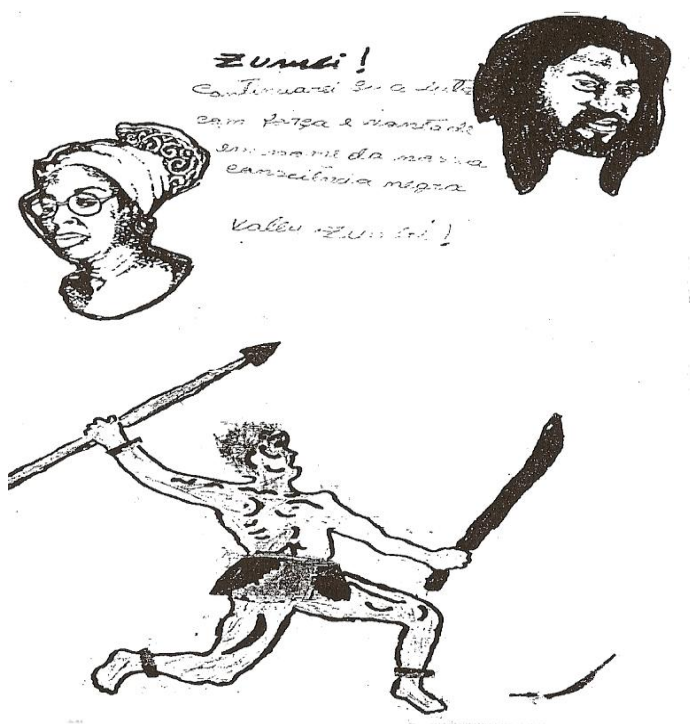 Zumbi!
Continuarei sua luta
com força e vontade
em nome da nossa
consciência negra
Valeu Zumbi!